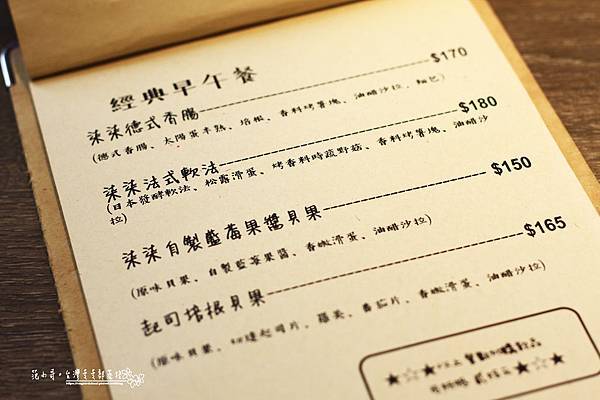 經典早午餐
柒柒德式香腸 $170
(德式香腸、太陽蛋半熟、培根、香料烤薯塊、油醋沙拉、麵包)
柒柒法式軟法 $180
(日本發酵軟法、松露滑蛋、烤香料時蔬野菇、香料烤薯塊、油醋沙
拉)
柒柒自製藍莓果醬貝果 $150
(原味貝果、自製藍莓果醬、香嫩滑蛋、油醋沙拉)
起司培根貝果 $165
(原味貝果、切達起司片、蘿美、番茄片、香嫩滑蛋、油醋沙拉)
★☆★
★☆★